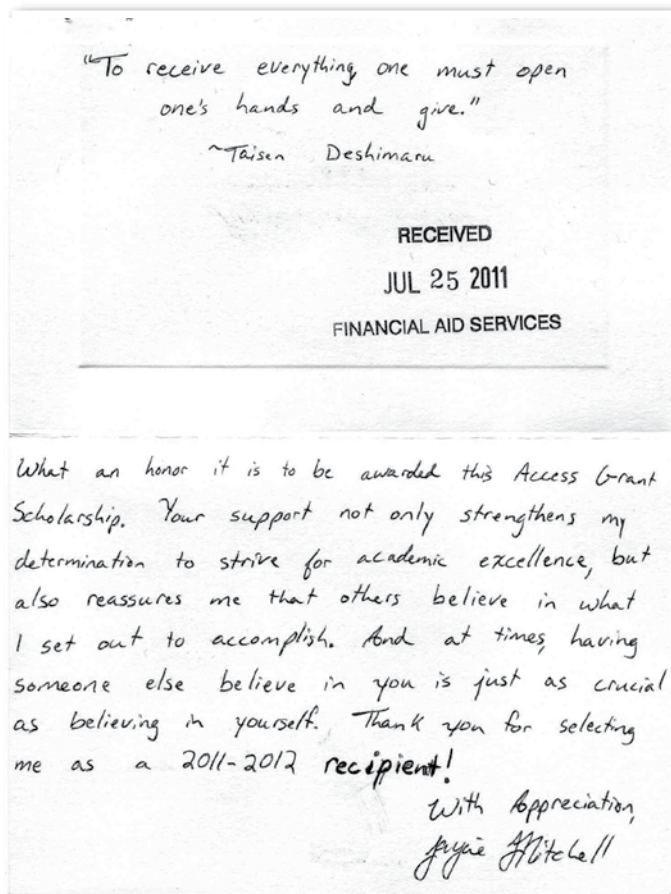 "To receive everything, one must open
one's hands and give."
~Taisen Deshimaru
RECEIVED
JUL 25 2011
FINANCIAL AID SERVICES
What an honor it is to be awarded this Access Grant
Scholarship. Your support not only strengthens my
determination to strive for academic excellence, but
also reassures me that others believe in what
I set out to accomplish. And at times, having
someone else believe in you is just as crucial
as believing in yourself. Thank you for selecting
me as a 2011-2012 recipient!
With Appreciation,
Mitchell